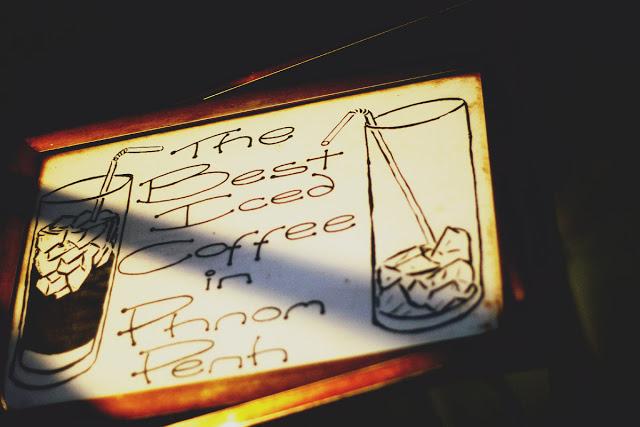 The
Best
Iced
Coffee
in
Phnom
Penh